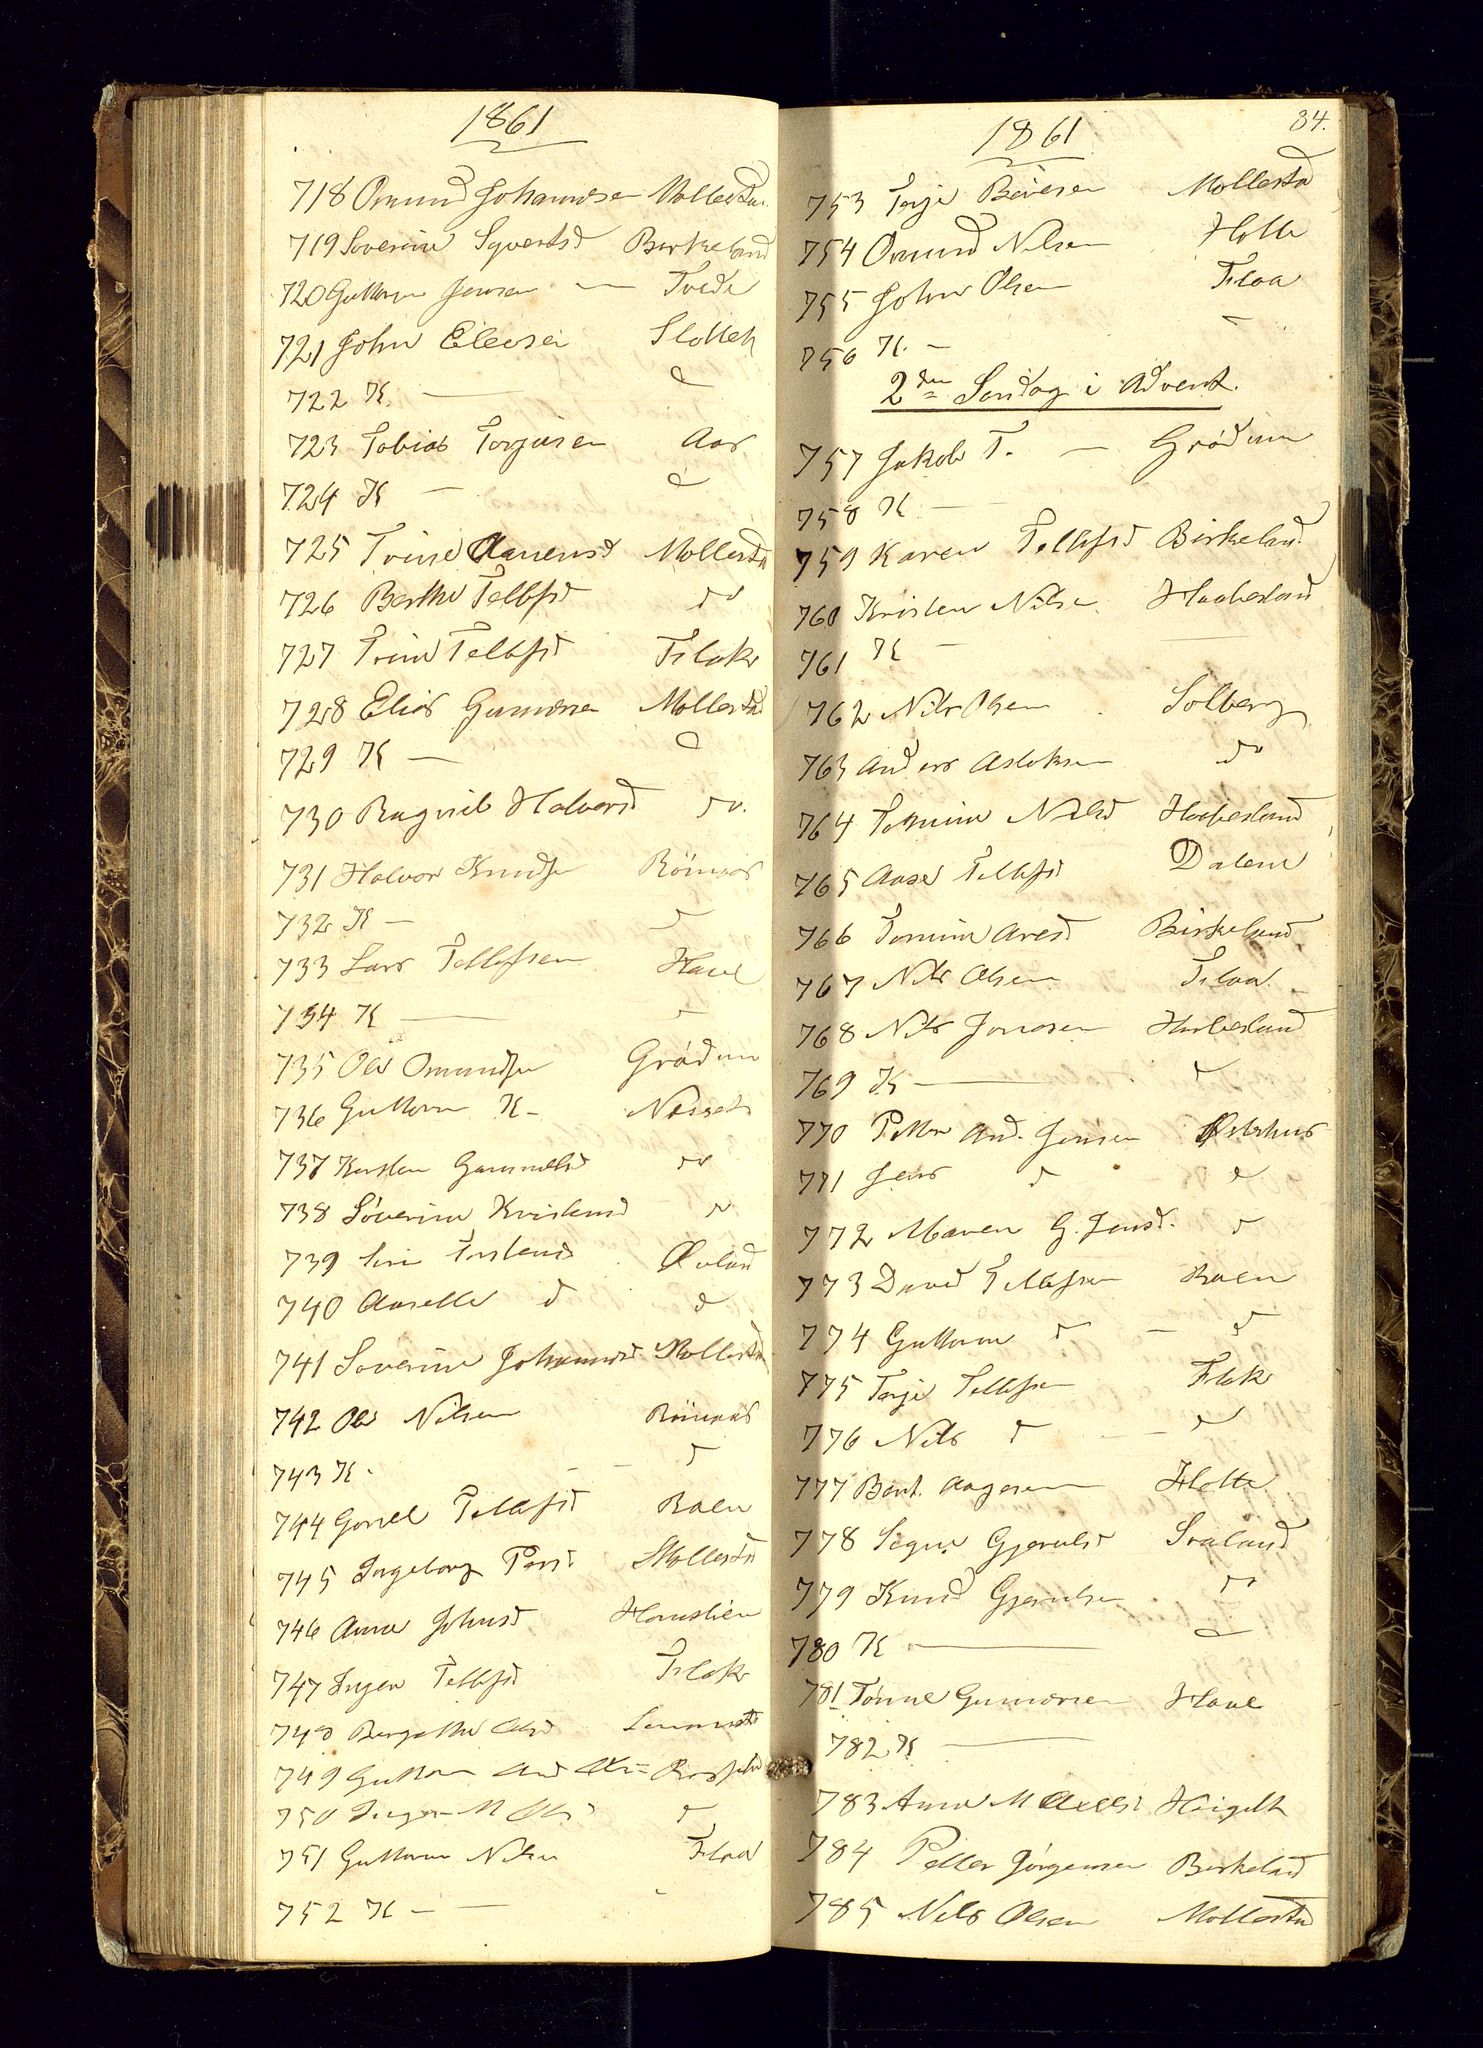 1861
718 Omund Johannesen Mollestad
719 Soverine Syvertsd Birkeland
720 Guttorm Jensen — Tvede
721 John Elevsen Slottet
722 K. — d
723 Tobias Torjusen Aas
724 K — d
725 Trine Aanensd Mollestad
726 Berthe Tellefsd do
727 Trine Tellefsd Flak
728 Elias Gunders Mollestad
729 K — d
730 Ragnil Halvorsd do.
731 Halvor Knudsen Röinaas
732 K — d
733 Lars Tellefsen Have
734 K — d
735 Ole Omundsen Grødum
736 Guttorm K -
737 Kirsten Gunnulsd do
738 Söverine Kristensd do
739 Siri Øvland
740 Aaselle d d
741 Soverine Johannesd Mollestad
742 Ole Nilsen Röinaas
743 K. — d
744 Gonil Tellefsd Raen
745 Ingeborg Persd Mollestad
746 Anne Johnsd
747 Inger Tellefsd Flak
748 Olsd
749 Guttorm And
750 Inger M Ols d
751 Guttorm Nilsen Floa
752 K — —
34.
1861
753 Terje Mollestad
754 Omund Nilsen Hotte
755 John Olsen Floa
756 K. —
2den Søndag i Advent.
757 Jakob T. — Grødum
758 K. —
759 Karen Tellefsd Birkeland
760 Kristen Nilsen Haabesland
761 K —
762 Nils Olsen Solberg
763 Anders Aslaksen do
764 Nilsd Haabesland
765 Aase Tellefsd Dalene
766 Birkeland
767 Nils Olsen Floa
768 Nils Jonasen Haabesland
769 K — d
770 Petter And. Jensen Østerhus
771 Jens d d
772 Maren G. Jensd. d
773 David Tellefsen Raen
774 Guttorm d — d
775 Terje Tellefsen Flak
776 Nils d — d
777 Bent Aagesen Hotte
778 Signe Gjerulsd Svaland
779 Knud Gjerulsen do
780 K — d
781 Tønnes Gundersen Have
782 K —
783 Anne M
784 Petter Jørgensen Birkeland
785 Nils Olsen Mollestad